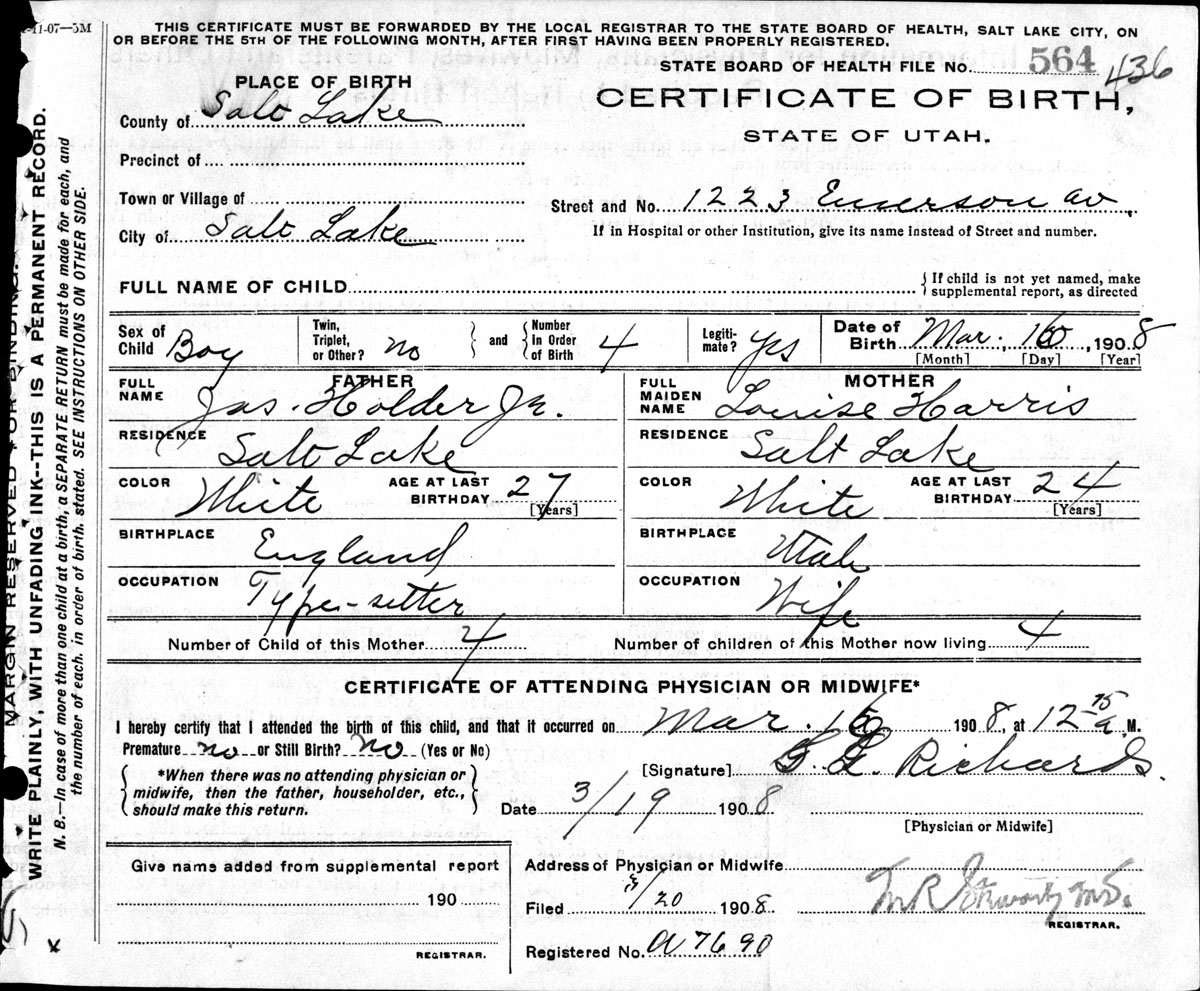 -11-07—5M
THIS CERTIFICATE MUST BE FORWARDED BY THE LOCAL REGISTRAR TO THE STATE BOARD OF HEALTH, SALT LAKE CITY, ON
OR BEFORE THE 5TH OF THE FOLLOWING MONTH, AFTER FIRST HAVING BEEN PROPERLY REGISTERED.
STATE BOARD OF HEALTH FILE No. 564 436
PLACE OF BIRTH
CERTIFICATE OF BIRTH,
STATE OF UTAH.
County of Salt Lake
Precinct of
Town or Village of
Street and No. 1223 Emerson av.
City of Salt Lake
If in Hospital or other Institution, give its name instead of Street and number.
FULL NAME OF CHILD
{If child is not yet named, make
supplemental report, as directed
Sex of Child Boy
Twin, Triplet, or Other? no
and
Number In Order of Birth 4
Legiti-mate? Yes
Date of Birth Mar. 16, 1908
[Month] [Day] [Year]
FATHER
FULL NAME Jas. Holder Jr.
RESIDENCE Salt Lake
COLOR White
AGE AT LAST BIRTHDAY 27
[Years]
BIRTHPLACE England
OCCUPATION Type-setter
MOTHER
FULL MAIDEN NAME Louise Harris
RESIDENCE Salt Lake
COLOR White
AGE AT LAST BIRTHDAY 24
[Years]
BIRTHPLACE Utah
OCCUPATION Wife
Number of Child of this Mother 4
Number of children of this Mother now living 4
CERTIFICATE OF ATTENDING PHYSICIAN OR MIDWIFE*
I hereby certify that I attended the birth of this child, and that it occurred on Mar. 16 1908, at 12 15 a M.
Premature no or Still Birth? no (Yes or No)
*When there was no attending physician or
midwife, then the father, householder, etc.,
should make this return.
[Signature] G. G. Richards.
Date 3/19 1908
[Physician or Midwife]
Give name added from supplemental report
190
REGISTRAR.
Address of Physician or Midwife
Filed 3/20 1908
REGISTRAR.
Registered No. a 7690
MARGIN RESERVED FOR BINDING.
WRITE PLAINLY, WITH UNFADING INK--THIS IS A PERMANENT RECORD.
N. B.—In case of more than one child at birth, a SEPARATE RETURN must be made for each, and
the number of each, in order of birth, stated. SEE INSTRUCTIONS ON OTHER SIDE.
x